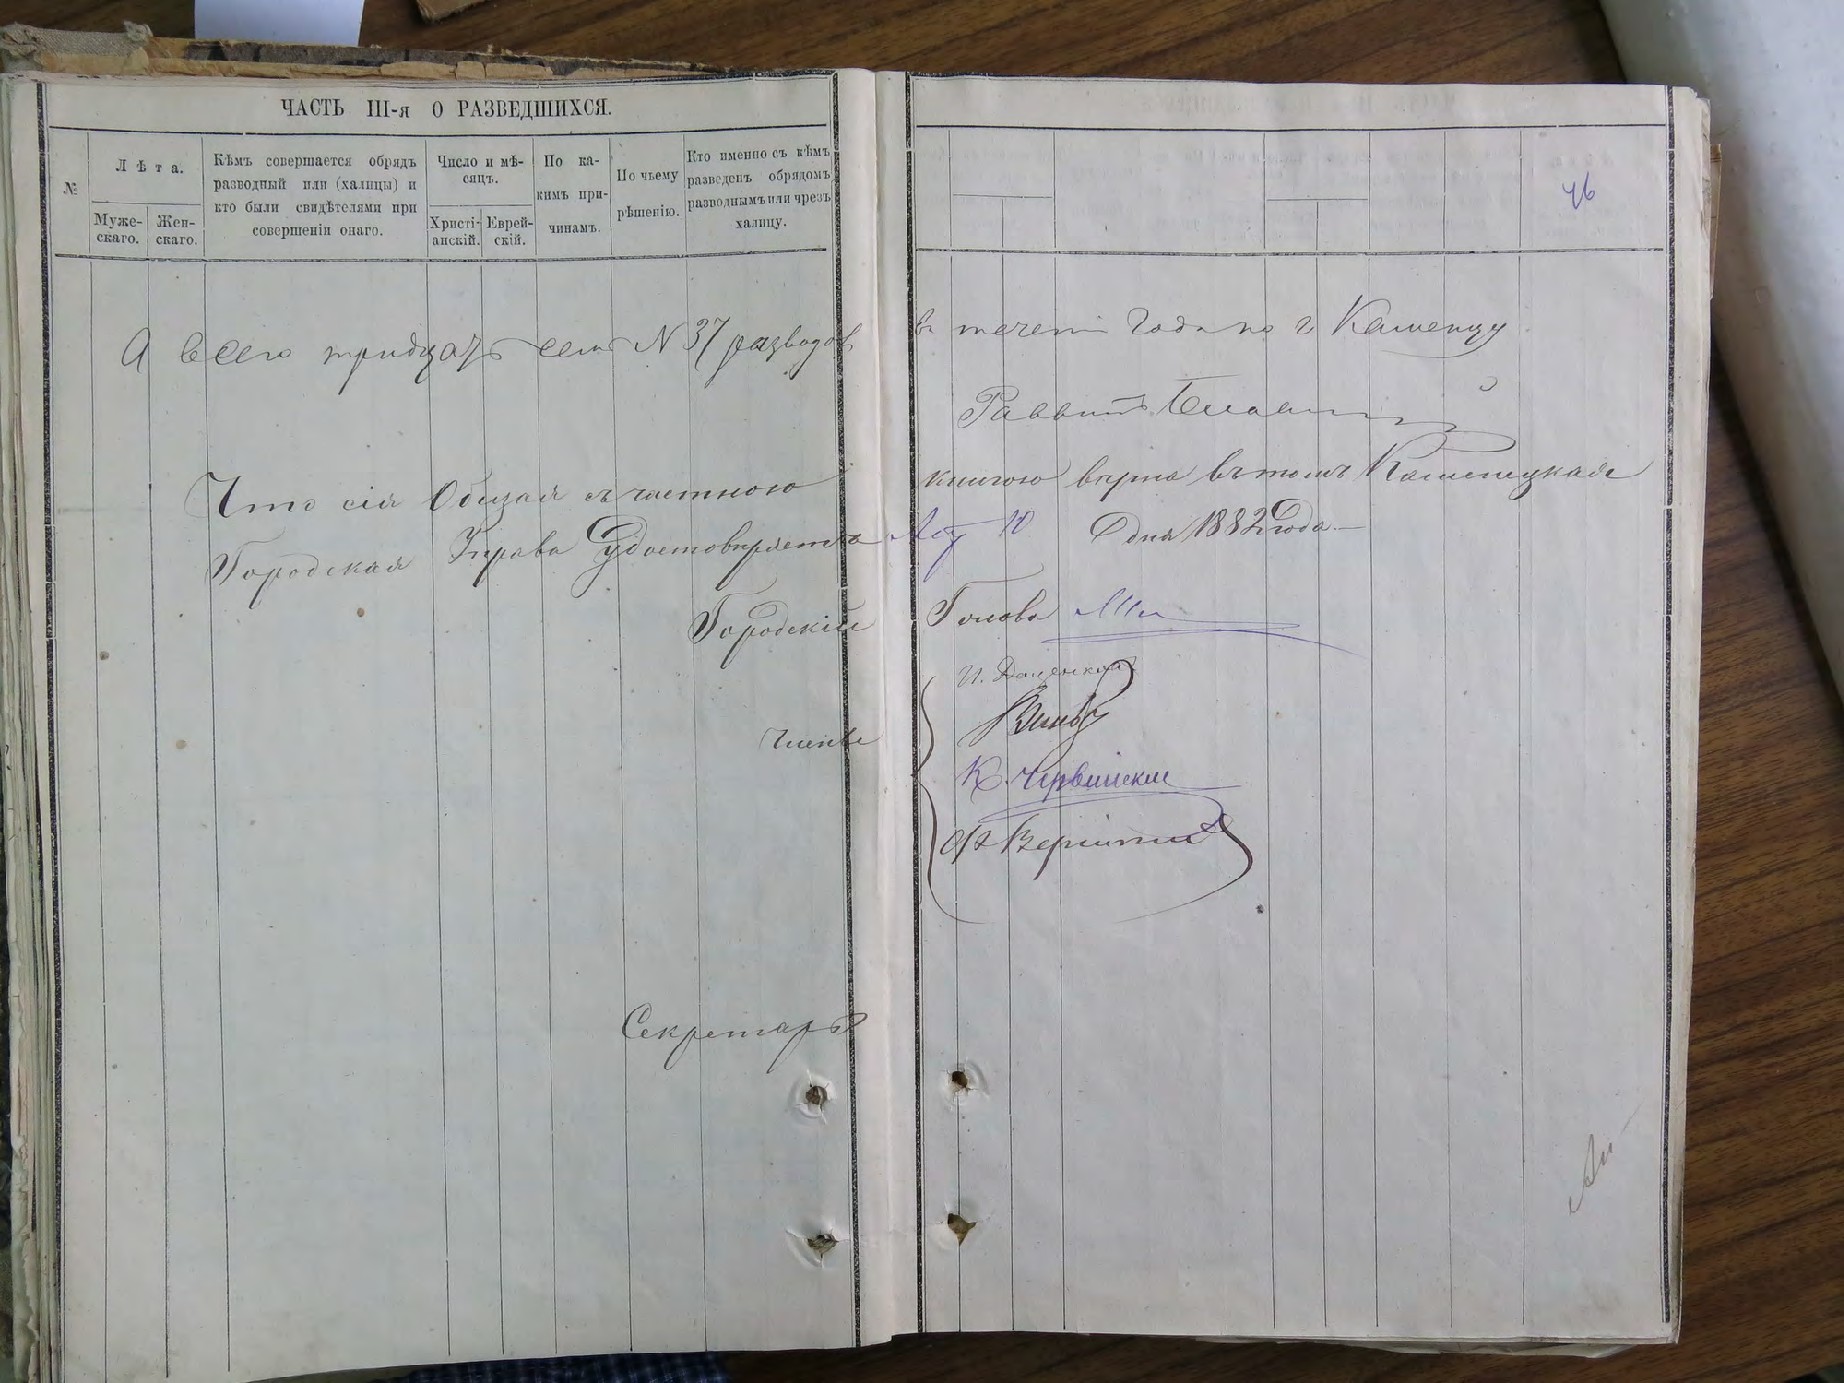 ЧАСТЬ III-я О РАЗВЕДШИХСЯ.
№
Лѣта.
Муже-
скаго.
Жен-
скаго.
Кѣмъ совершается обрядъ
разводный или (халицы) и
кто были свидѣтелями при
совершеніи онаго.
Число и мѣ-
сяцъ.
Христі-
анскій.
Еврей-
скій.
По ка-
кимъ при-
чинамъ.
По чьему
рѣшенію.
Кто именно съ кѣмъ
разведенъ обрядомъ
разводнымъ или чрезъ
халицу.
46
А всего тридцать семь N 37 разводов в течени года по г. Каменцу
Раввинъ
Что сія Общая съ частною книгою вѣрна въ томъ Каменецкая
Городская Управа Удостовѣряетъ 10 дня 1882 года
Городскій Голова
Члены
К. Червинскій
Секретарь